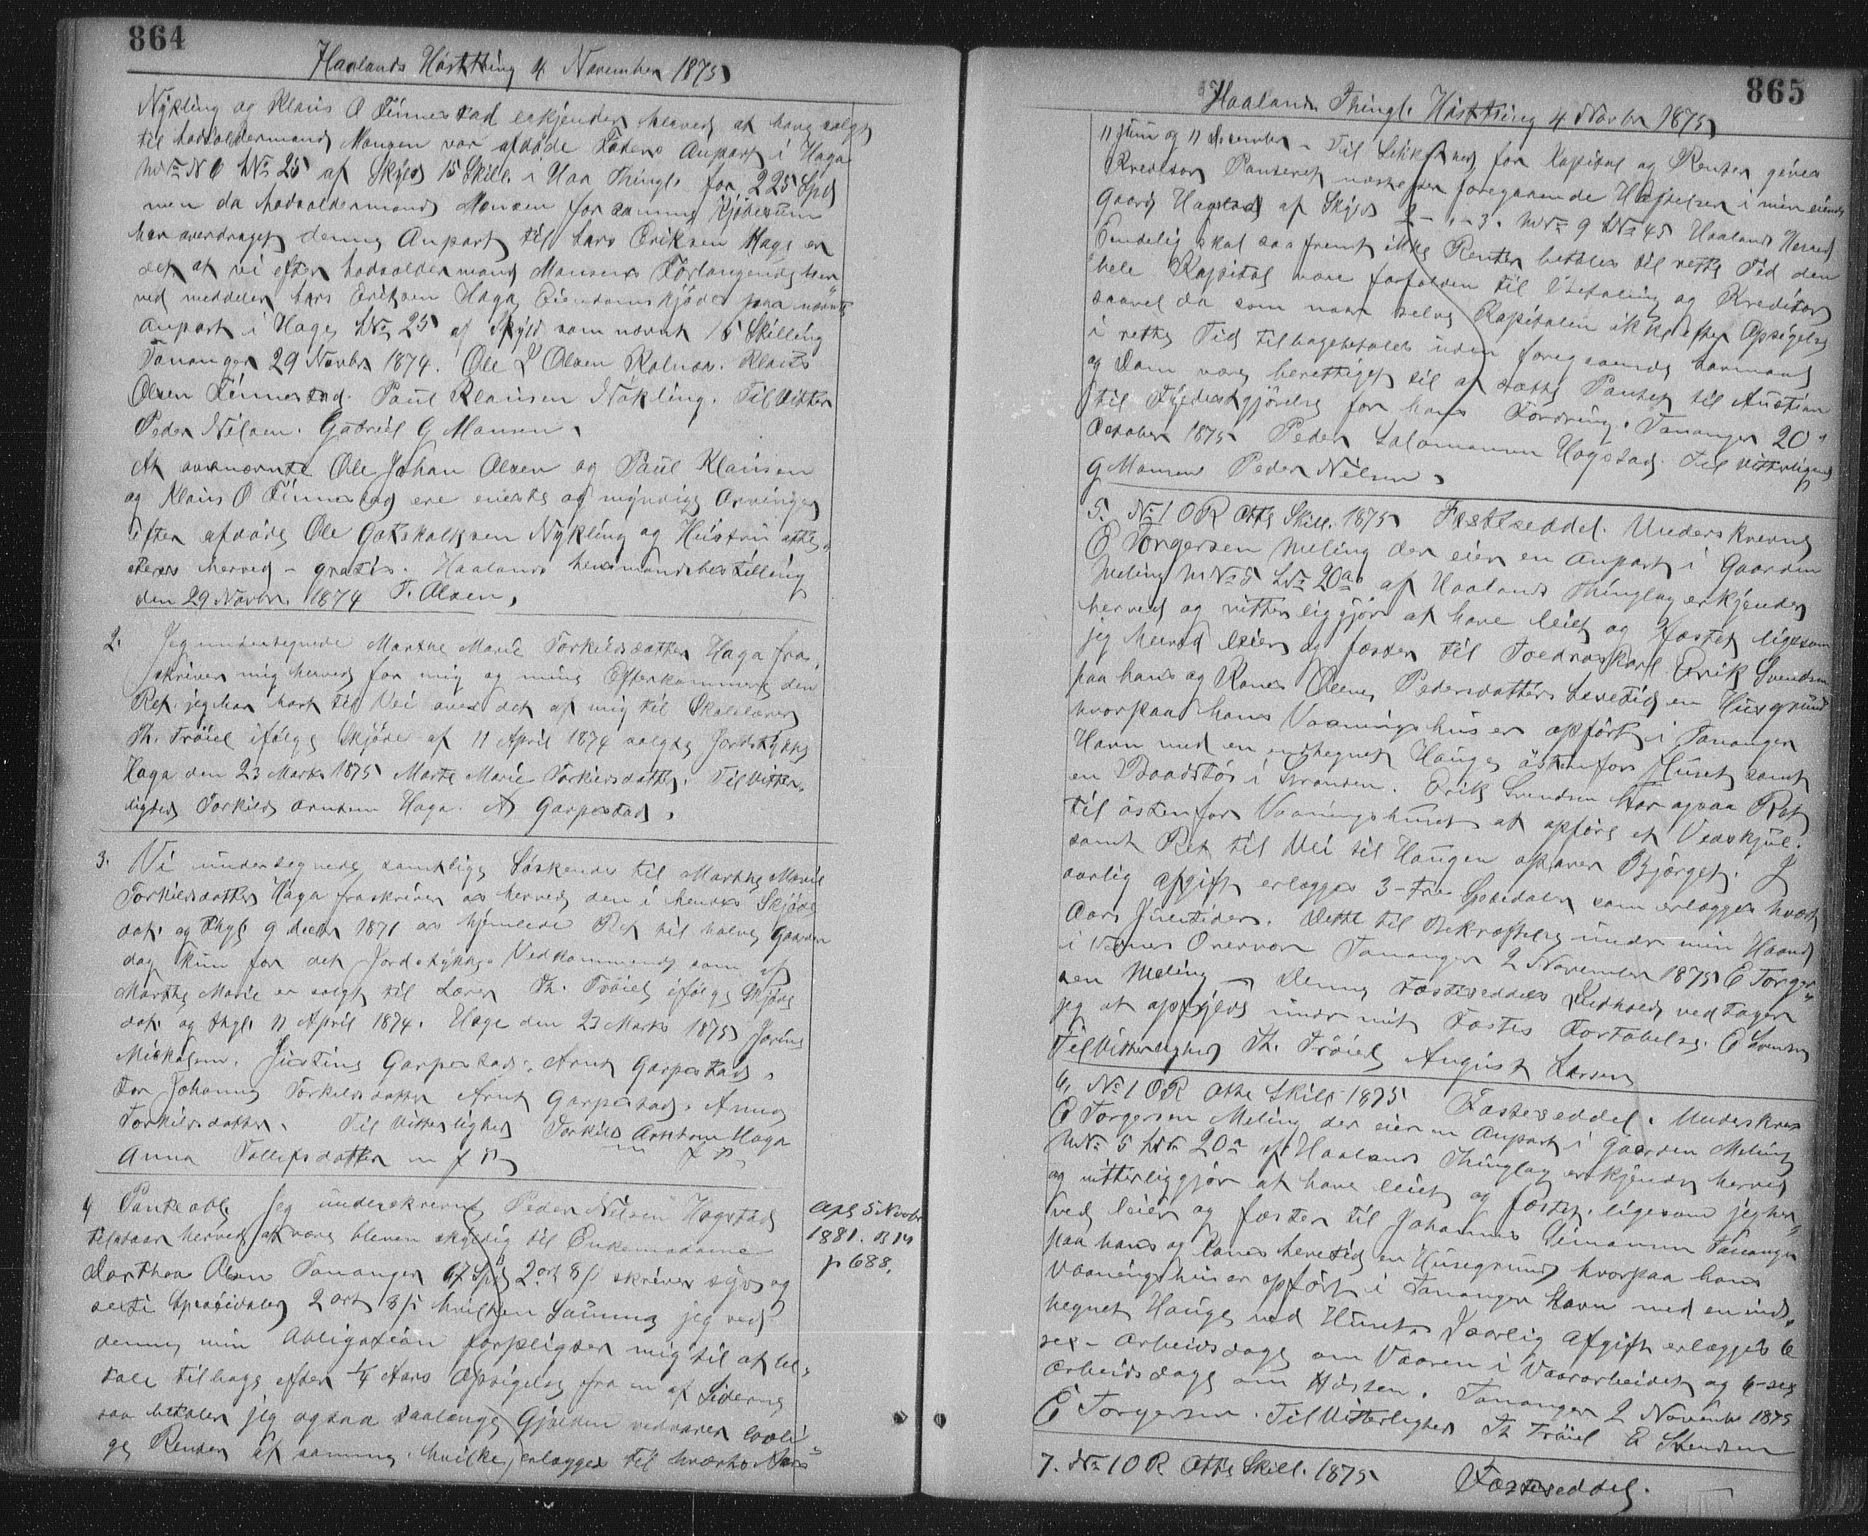 864
Haalands Høstthing 4 November 1875
Nykling og Klaus O Finnestad erkjender herved at have solgt
til Lodsoldermand Monsen vor afdøde Faders Anpart i Haga
M No 6 LNo 25 af Skyld 15 Skill. i Haa Thingl. for 225 Spd
men da Lodsoldermand Monsen for samme Kjøbesum
har overdraget denne Anpart til Lars Eriksen Haga er
det at vi efter Lodsoldermand Monsens Forlangende her
ved meddeler Lars Eriksen Haga Eiendomsskjøde paa nævnte
Anpart i Haga LNo 25 af Skyld som nævnt 15 Skilling
Tananger 29 Novbr 1874. Ole J Olsen Klaus
Olsen Finnestad. Paul Klausen Nökling. Til Vitter
Peder Nilsen. Gabriel G Monsen.
At ovennævnte Ole Johan Olsen og Paul Klausen
og Klaus O Finnestad ere eneste og myndige Arvinger
efter afdøde Ole Gotskalksen Nykling og Hustru atte
steres herved - gratis. Haalands Lensmandsbestilling
den 29 Novbr 1874 T. Olsen.
2. Jeg undertegnede Marthe Marie Torkildsdatter Haga fra-
skriver mig herved for mig og mine Efterkommere den
Ret jeg har havt til Vei over det af mig til Skolelærer
Th. Tröiel ifølge Skjøde af 11 April 1874 solgte Jordstykke
Haga den 23 Marts 1875 Marte Marie Torkildsdatter. Til Vitter-
lighed Torkild Arntsen Haga. A Garpestad.
3. Vi undertegnede samtlige Søskende til Marthe Marie
Torkildsdatter Haga fraskriver os herved den i hendes Skjøde
dat. og thgl. 9 decbr 1871 os hjemlede Ret til halve Gaarden
dog kun for det Jordstykkes Vedkommende som af
Marthe Marie er solgt til Lærer Th. Tröiel ifølge Skjøde
dat. og thgl. 11 April 1874. Haga den 23 Marts 1875 Jorine
Mickalsen. Justine Garpestad. Arnt Garpestad.
For Johanne Torkildsdatter Arnt Garpestad. Anna
Torkildsdatter. Til Vitterlighed Torkild Arntsen Haga
Anna Tollefsdatter m f P m f P
4 Panteobl. Jeg underskrevne Peder Nilsen Hogstad
tilstaar herved at være bleven skyldig til Enkemadame
Dorthea Olsen Tananger 67 Spd 2 ort 8 s skriver syv og
sexti Speciedaler 2 ort 8 s hvilken Summa jeg ved
denne min Obligation forpligter mig til at be-
tale tilbage efter 1/4 Aars Opsigelse fra en af Siderne
saa betaler jeg ogsaa saalænge Gjælden vedvarer lovli
ge Renter af samme, hvilke erlægges til hverts Aars
Aflst 5 Novbr
1881. B 14
p 688.
865
Haalands Thingl. Høstthing 4 Novbr 1875
11 Juni og 11 December - Til Sikkerhed for Kapital og Renter gives
Kreditor Panteret næstefter foregaaende Heftelser i min eiende
Gaard Hogstad af Skyld - 3. MNo 9 LNo 45 Haalands Herred
Endelig skal saafremt ikke Renter betales til rette Tid den
hele Kapital være forfalden til Betaling og Kreditor
saavel da som naar selve Kapitalen ikke efter Opsigelse
i rette Tid tilbagebetales uden foregaaende Lovmaal
og Dom være berettiget til at sætte Pantet til Auction
til Fyldestgjørelse for hans Fordring. Tananger 20
October 1875 Peder Hogstad. Til Vitterlighed
G Monsen Peder Nilsen.
5. No 1 OR Otte Skill. 1875 Festeseddel. Underskrevne
E Torgersen Meling der eier en Anpart i Gaarden
Meling M No 5 LNo 20a af Haalands Thinglag erkjender
herved og vitterliggjør at have leiet og fæstet ligesom
jeg herved leier og fæster til Toldroskarl Erik Svendsen
paa hans og Kones Olene Pedersdatters Levetid en Husgrund
hvorpaa hans Vaaningshus er opført i Tananger
Havn med en indhegnet Hauge østenfor Huset samt
en Baadstø i Stranden. Erik Svendsen har ogsaa Ret
til østenfor Vaaningshuset at opføre et Vedskjul.
samt Ret til Vei til Haugen opover Bjerget. I
aarlig Afgift erlægges 3 - tre Speciedaler som erlægges hvert
Aars Juletider. Dette til Bekræftelse under min Haand
i Vidners Overvær Tananger 2 November 1875 E Torger-
sen Meling - Denne Festeseddels Indhold vedtager
jeg at opfylde under mit Festes Fortabelse. E Svensen
Til Vitterlighed Th. Tröiel August Larsen
6. No 1 OR Otte Skill 1875 Festeseddel. Underskrev
E Torgersen Meling der eier en Anpart i Gaarden Meling
MNo 5 LNo 20a af Haalands Thinglag erkjender herved
og vitterliggjør at have leiet og fæstet ligesom jeg her-
ved leier og fæster til Johannes Simonsen Tananger
paa hans og Kones Levetid en Husegrund hvorpaa hans
Vaaningshus er opført i Tananger Havn med en ind-
hegnet Hauge ved Huset. I aarlig Afgift erlægges 6
sex - Arbeidsdage om Vaaren i Vaararbeidet og 6 - sex
Arbeidsdage om Høsten. Tananger 2 Novembr 1875
E Torgersen. Til Vitterlighed Th Tröiel E Svendsen
7. No 1 OR Otte Skill. 1875 Festeseddel.